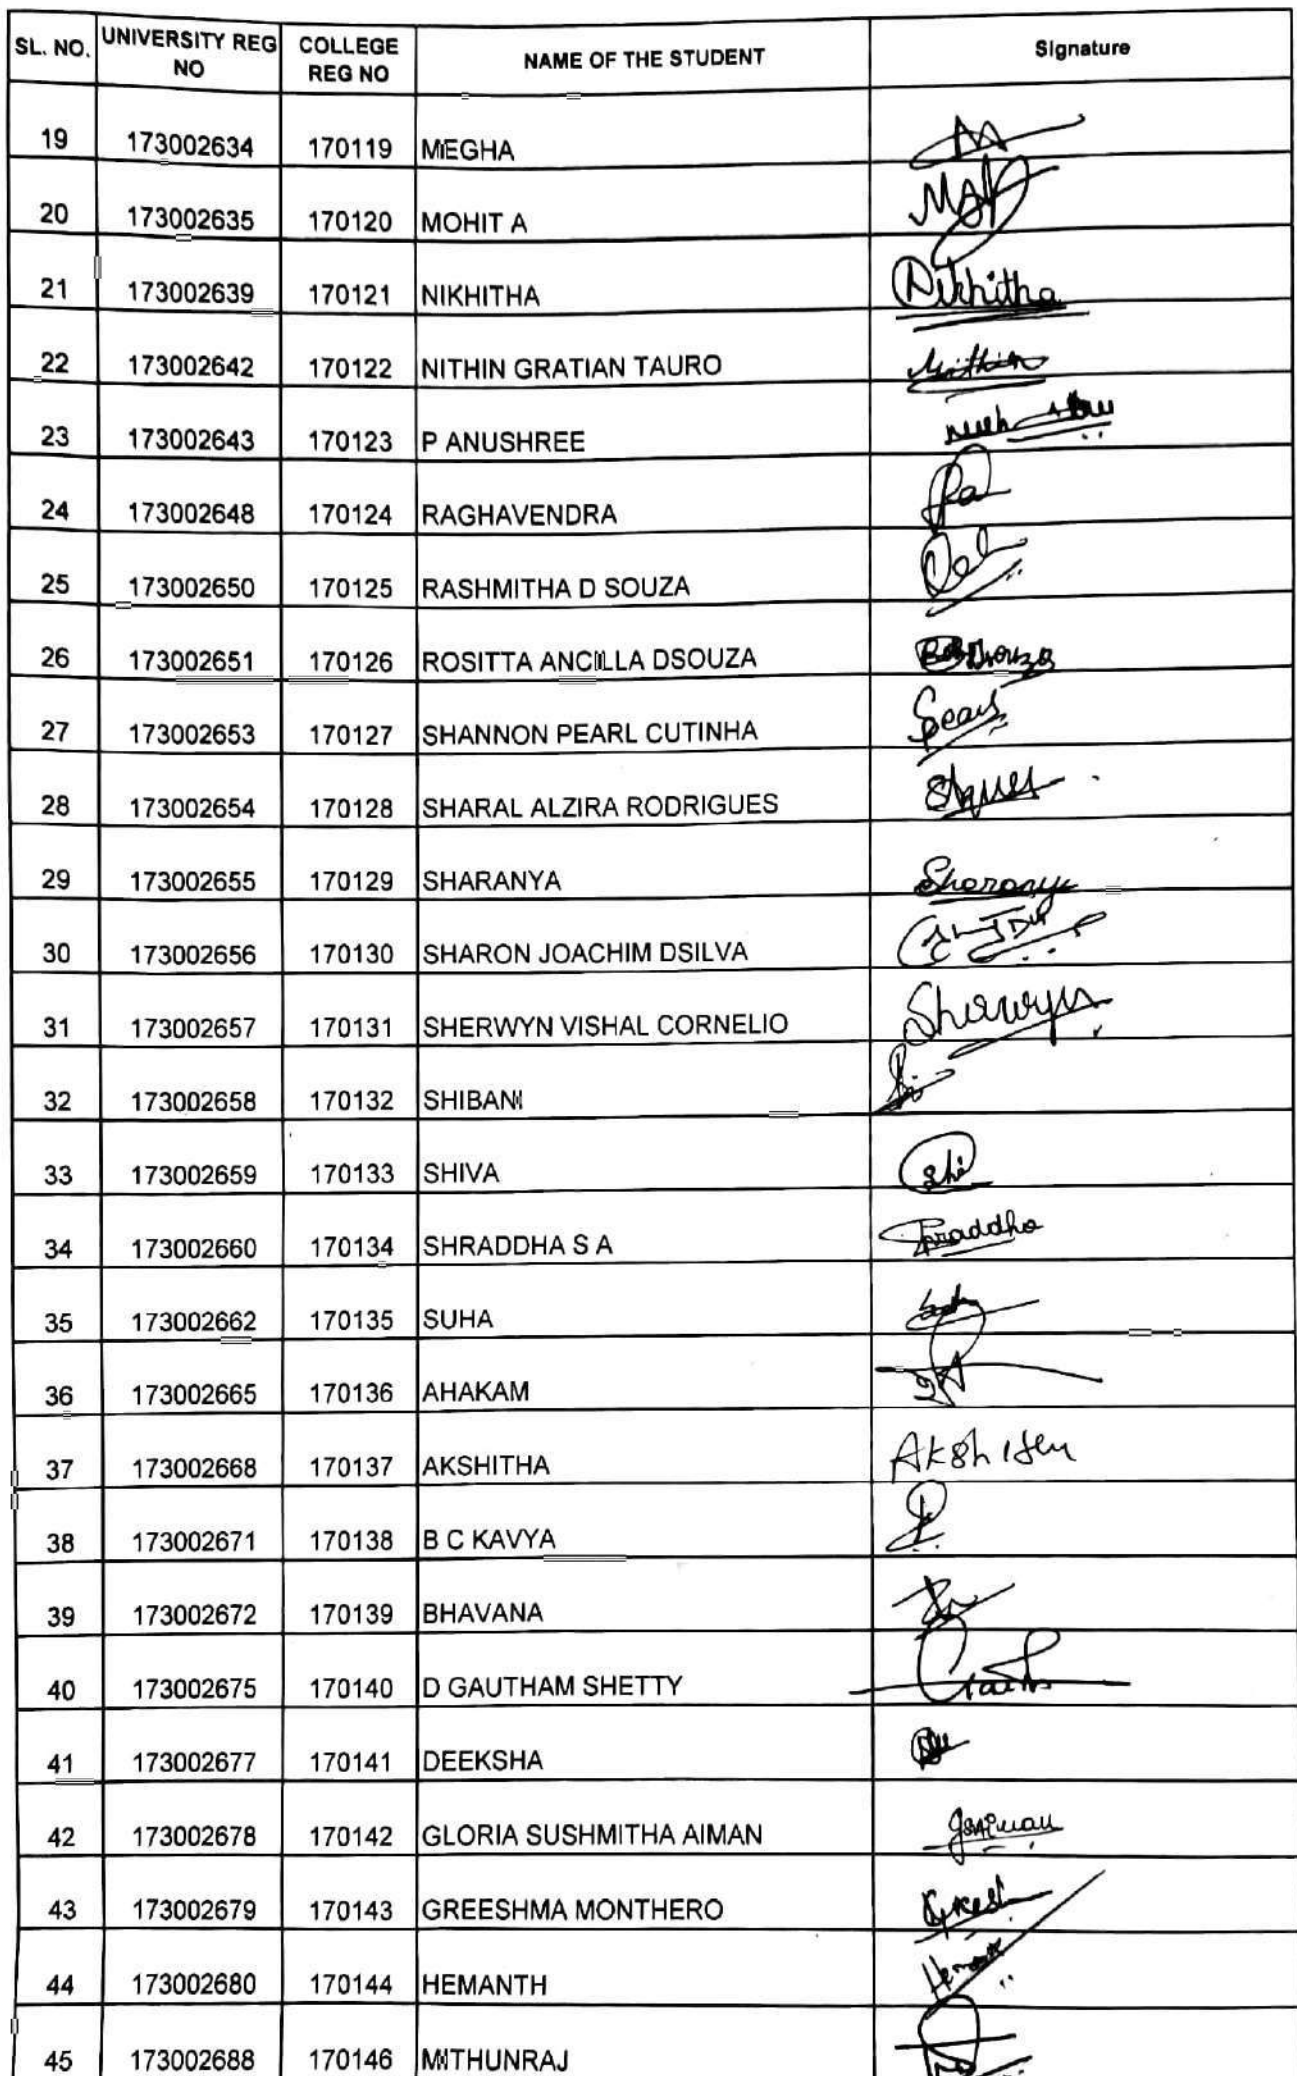 SL. NO. UNIVERSITY REG NO COLLEGE REG NO NAME OF THE STUDENT Signature
19 173002634 170119 MEGHA
20 173002635 170120 MOHIT A
21 173002639 170121 NIKHITHA Nikhitha
22 173002642 170122 NITHIN GRATIAN TAURO Nithin
23 173002643 170123 P ANUSHREE
24 173002648 170124 RAGHAVENDRA
25 173002650 170125 RASHMITHA D SOUZA
26 173002651 170126 ROSITTA ANCILLA DSOUZA
27 173002653 170127 SHANNON PEARL CUTINHA
28 173002654 170128 SHARAL ALZIRA RODRIGUES
29 173002655 170129 SHARANYA Sharanya
30 173002656 170130 SHARON JOACHIM DSILVA
31 173002657 170131 SHERWYN VISHAL CORNELIO Sherwyn
32 173002658 170132 SHIBANI
33 173002659 170133 SHIVA Shi
34 173002660 170134 SHRADDHA S A Shraddha
35 173002662 170135 SUHA
36 173002665 170136 AHAKAM
37 173002668 170137 AKSHITHA
38 173002671 170138 B C KAVYA
39 173002672 170139 BHAVANA
40 173002675 170140 D GAUTHAM SHETTY
41 173002677 170141 DEEKSHA
42 173002678 170142 GLORIA SUSHMITHA AIMAN
43 173002679 170143 GREESHMA MONTHERO
44 173002680 170144 HEMANTH
45 173002688 170146 MITHUNRAJ